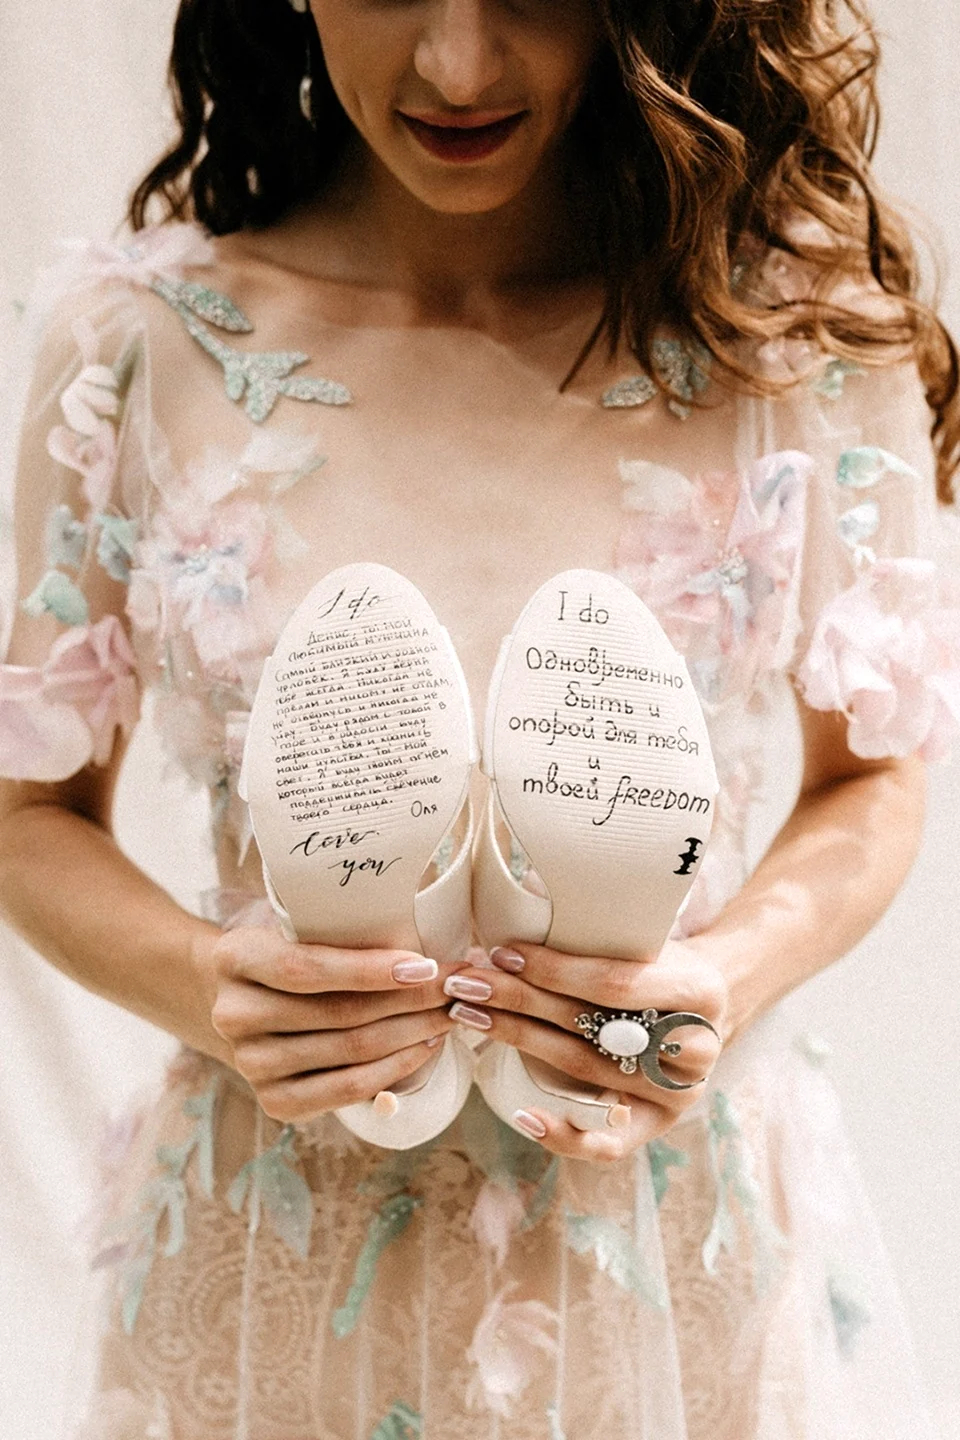 I do
Денис, ты мой
любимый мужчина
самый близкий и родной
человек. Я буду верна
тебе всегда. Никогда не
предам и никому не отдам,
не отвернусь и никогда не
уйду. Буду рядом с тобой в
горе и в радости. Буду
оберегать тебя и хранить
наши чувства. Ты – мой
свет. Я буду твоим огнём
который всегда будет
поддерживать свечение
твоего сердца.
Оля
love
you
I do
Одновременно
быть и
опорой для тебя
и
твоей freedom